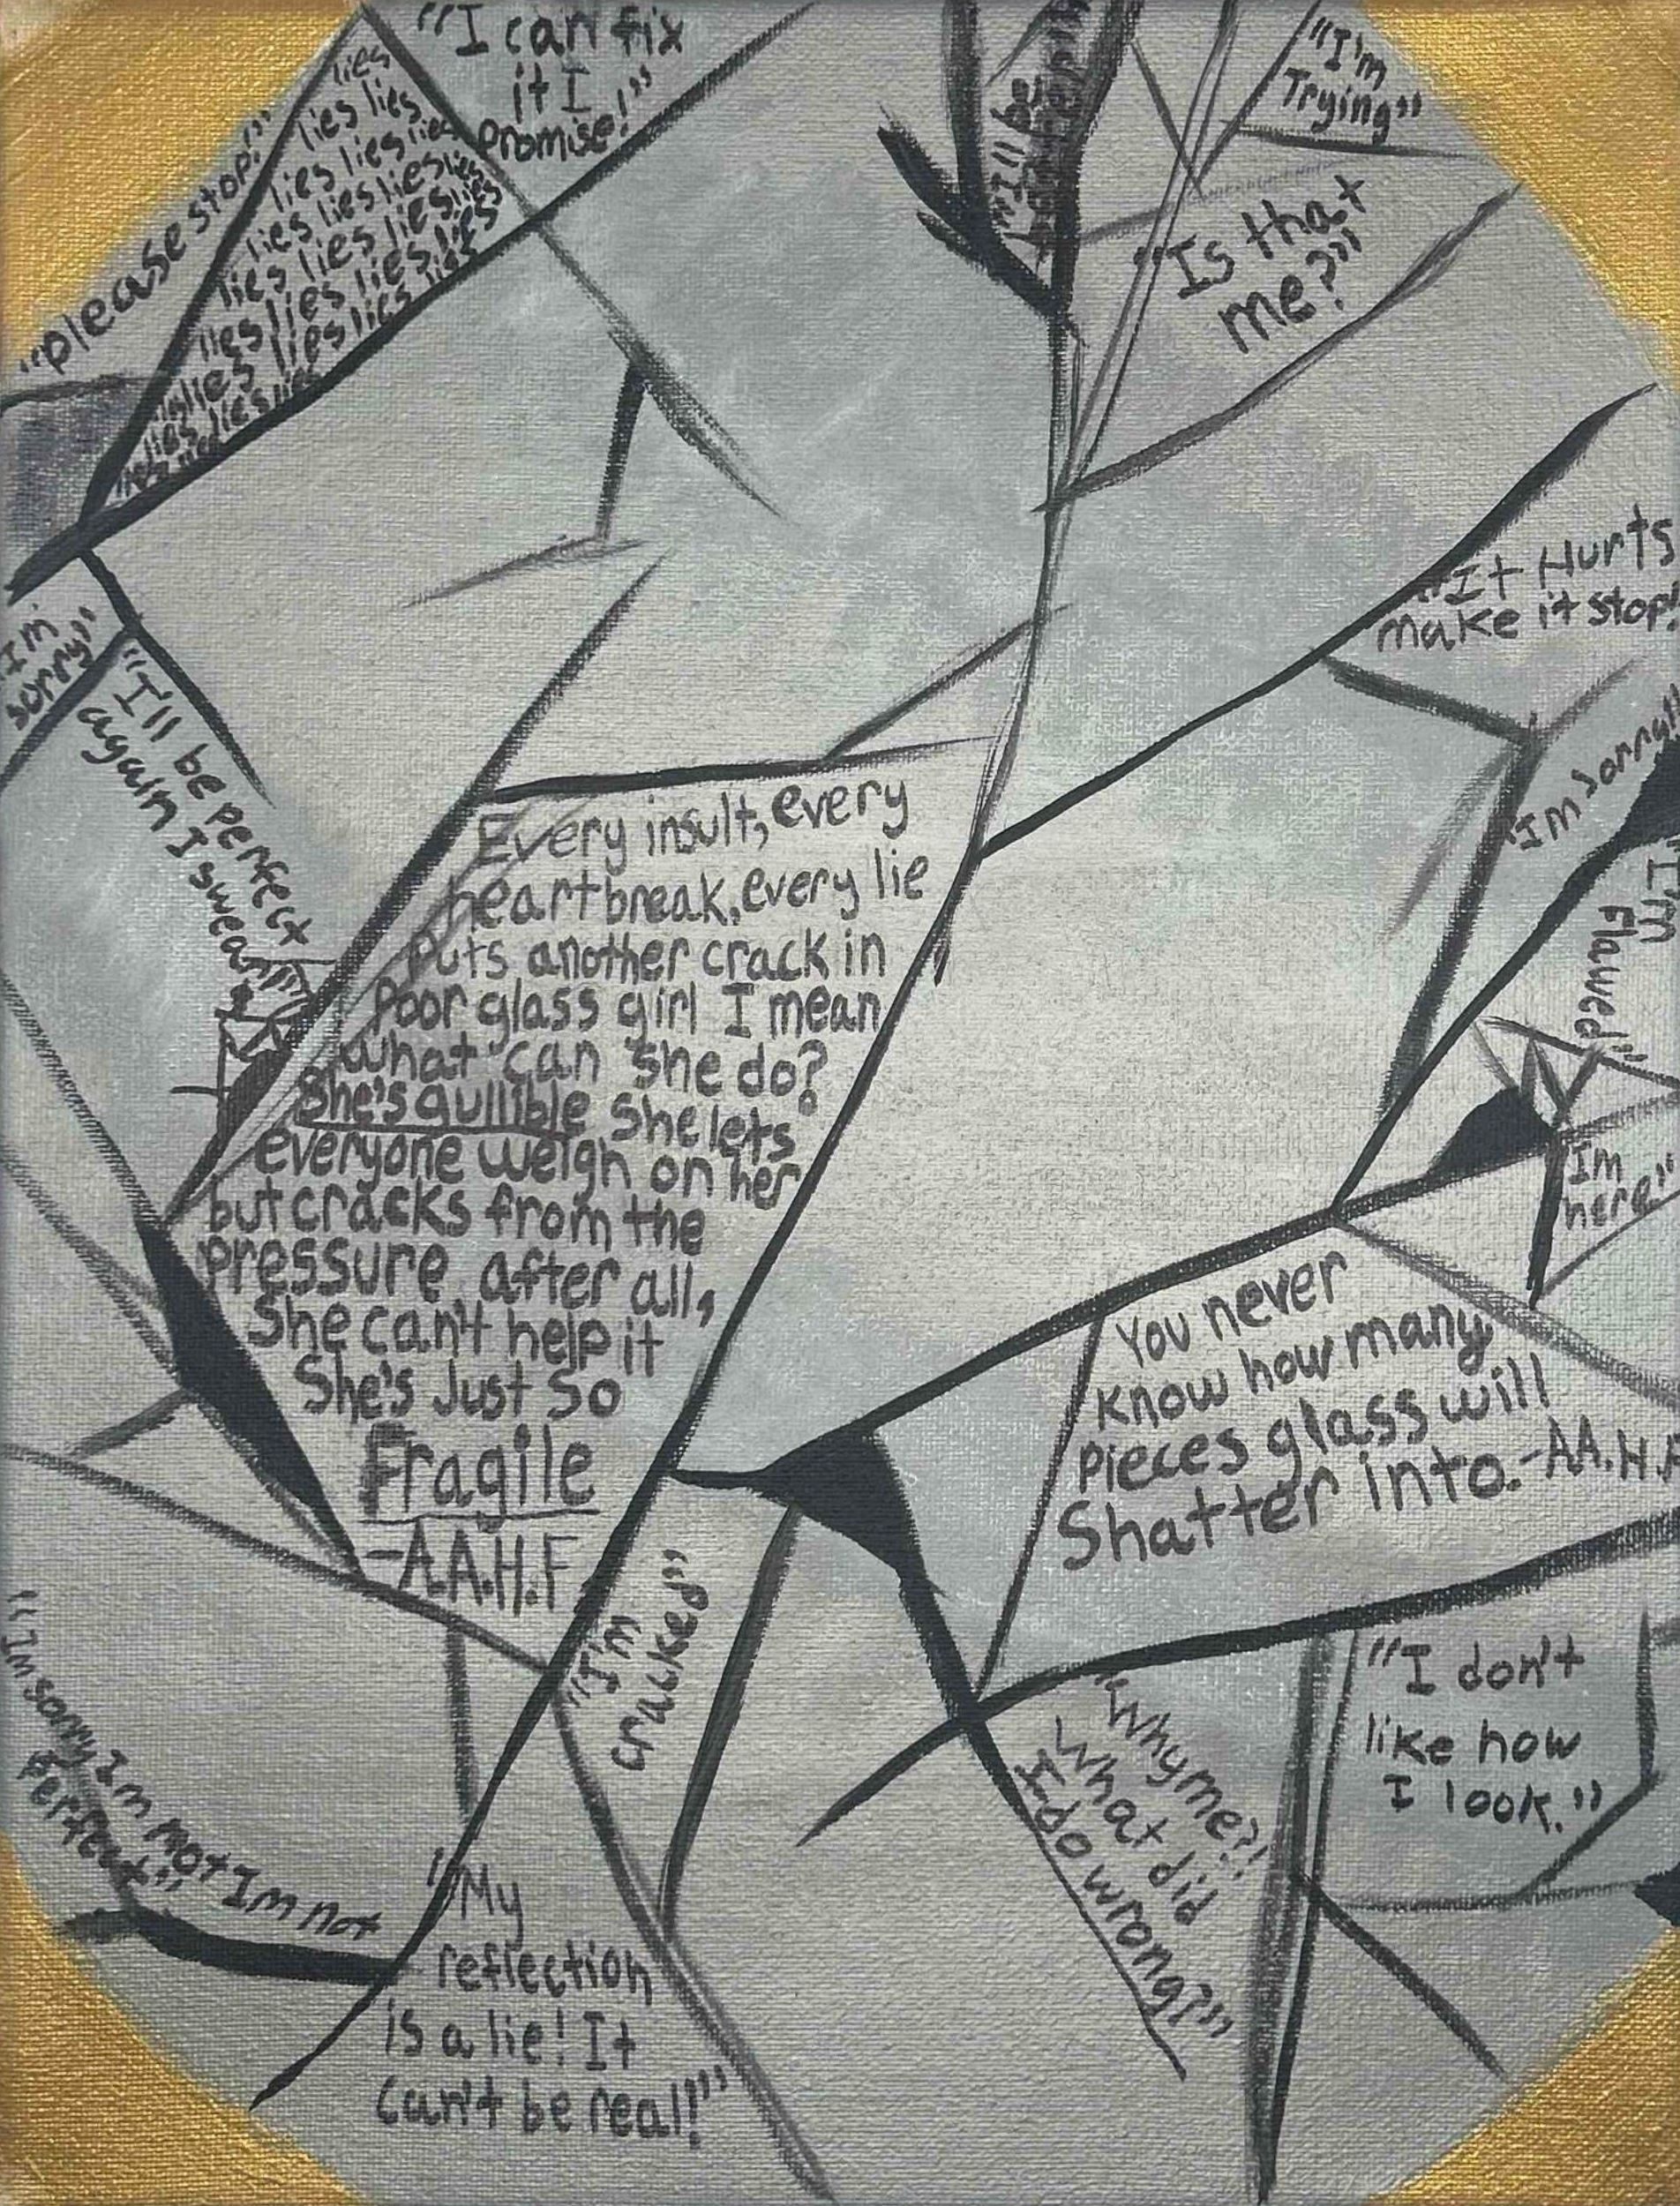 "I can fix
it I
promise!"
"please stop!"
lies
lies lies
lies lies lies
lies lies lies lies
lies lies lies lies
lies lies lies lies
lies lies lies lies
lies lies lies
"I'll be
"I'm
Trying"
"Is that
me?"
"It Hurts
make it stop!
I'm
sorry"
"I'll be perfect
again I swear
"Im sorry"
"I'm
Flawed"
Im
here"
Every insult, every
heartbreak, every lie
puts another crack in
Poor glass girl I mean
what can she do?
She's gullible she lets
everyone weigh on her
but cracks from the
pressure after all,
She can't help it
She's Just So
Fragile
-A.A.H.F
You never
know how many
pieces glass will
Shatter into.-AA.H.F
"I'm
cracked"
"Im sorry Im not Im not
perfect"
"Why me?!
What did
I do wrong?"
"I don't
like how
I look."
"My
reflection
is a lie! It
can't be real!"